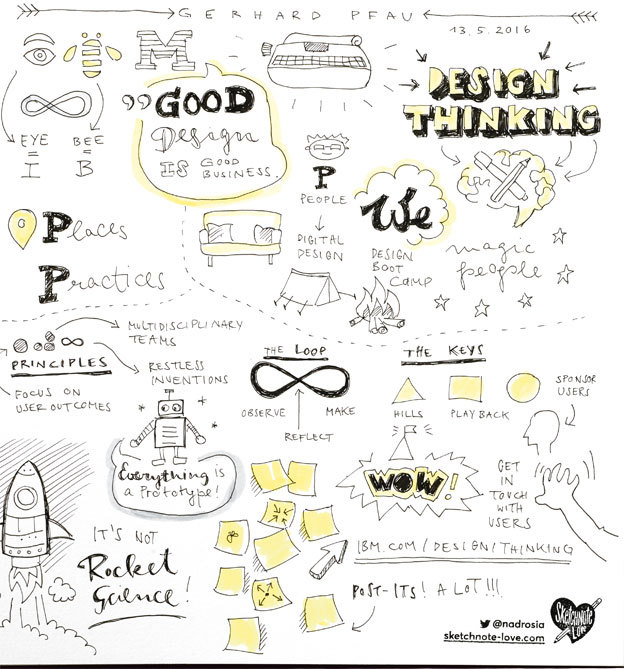 GERHARD PFAU
13.5.2016
M
EYE
=
I
BEE
=
B
"GOOD
Design
IS GOOD
BUSINESS.
DESIGN
THINKING
P
PEOPLE
DIGITAL
DESIGN
We
DESIGN
BOOT
CAMP
magic
people
Places
Practices
PRINCIPLES
MULTIDISCIPLINARY
TEAMS
RESTLESS
INVENTIONS
FOCUS ON
USER OUTCOMES
Everything is
a Prototype!
THE LOOP
OBSERVE
MAKE
REFLECT
THE KEYS
HILLS
PLAYBACK
SPONSOR
USERS
WOW!
GET
IN
TOUCH
WITH
USERS
IT'S NOT
Rocket
Science!
IBM.COM/DESIGN/THINKING
POST-ITS! A LOT!!!
@nadrosia
sketchnote-love.com
Sketchnote
Love